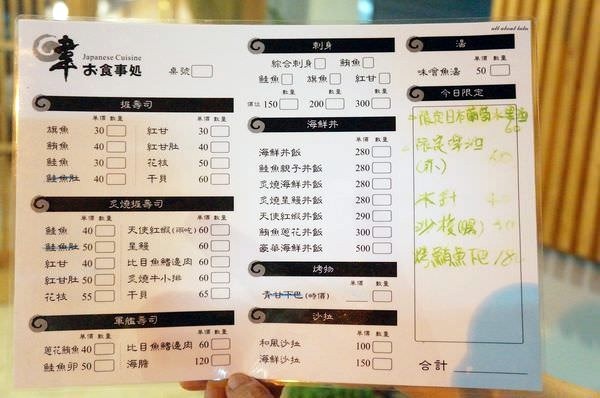 all about lulu
韋
Japanese Cuisine
お食事処
桌號
握壽司
單價 數量 單價 數量
旗魚 30 紅甘 30
鮪魚 40 紅甘肚 40
鮭魚 30 花枝 50
鮭魚肚 40 干貝 60
炙燒握壽司
單價 數量 單價 數量
鮭魚 40 天使紅蝦(兩吃) 60
鮭魚肚 50 星鰻 60
紅甘 40 比目魚鰭邊肉 60
紅甘肚 50 炙燒牛小排 60
花枝 55 干貝 65
軍艦壽司
單價 數量 單價 數量
蔥花鮪魚 40 比目魚鰭邊肉 60
鮭魚卵 50 海膽 120
刺身
綜合刺身 鮪魚
鮭魚 旗魚 紅甘
數量 數量 數量
價位 150 200 300
海鮮丼
單價 數量
海鮮丼飯 280
鮭魚親子丼飯 280
炙燒海鮮丼飯 280
炙燒星鰻丼飯 280
天使紅蝦丼飯 290
鮪魚蔥花丼飯 300
豪華海鮮丼飯 500
烤物
單價 數量
青甘下巴 (時價)
沙拉
單價 數量
和風沙拉 100
海鮮沙拉 150
湯
單價 數量
味噌魚湯 50
今日限定
限定日本葡萄水
60
限定
木針
沙梭(限)
烤鯛魚下巴 180
合計